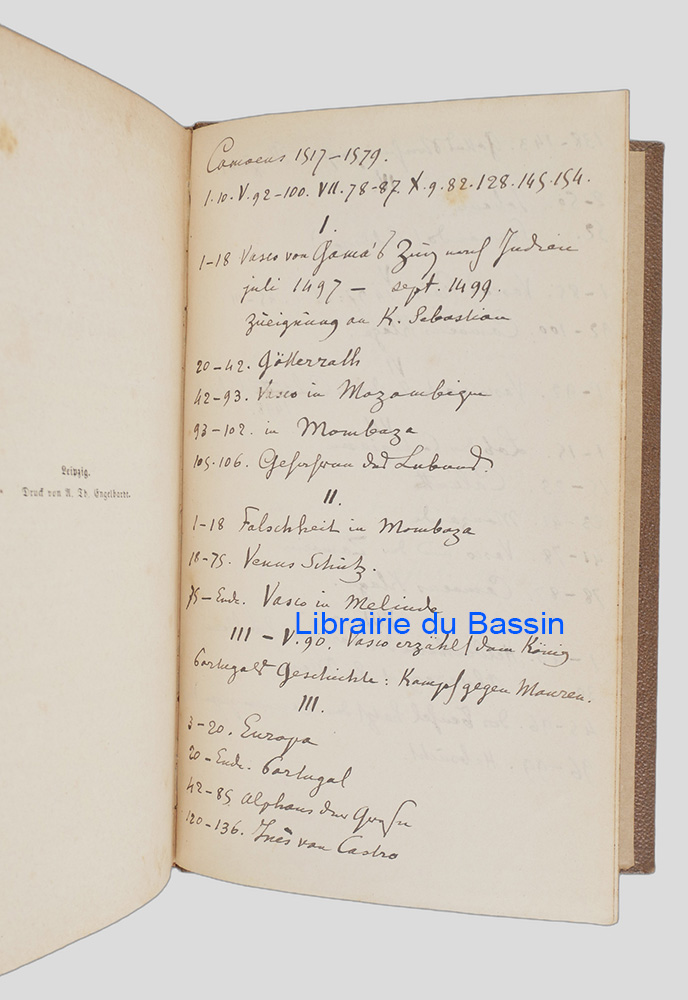 Leipzig.
Druck von A. Th. Engelhardt.
Camoens 1517–1579.
I.10. V.92–100. VII.78–87. X.9.82.128.145.154.
I.
1–18 Vasco von Gama's Zug nach Indien
juli 1497 – sept. 1499.
Zueignung an K. Sebastian
20–42. Götterrath
42–93. Vasco in Mozambique
93–102. in Mombaza
105.106. des
II.
1–18 Falschheit in Mombaza
18–75. Venus Schutz.
75–Ende. Vasco in Melinde
Librairie du Bassin
III – V.90. Vasco erzählt dem König
Portugals Geschichte: Kampf gegen Mauren.
III.
3–20. Europa
20–Ende. Portugal
42–85. Alphons der Große
120–136. Inês von Castro